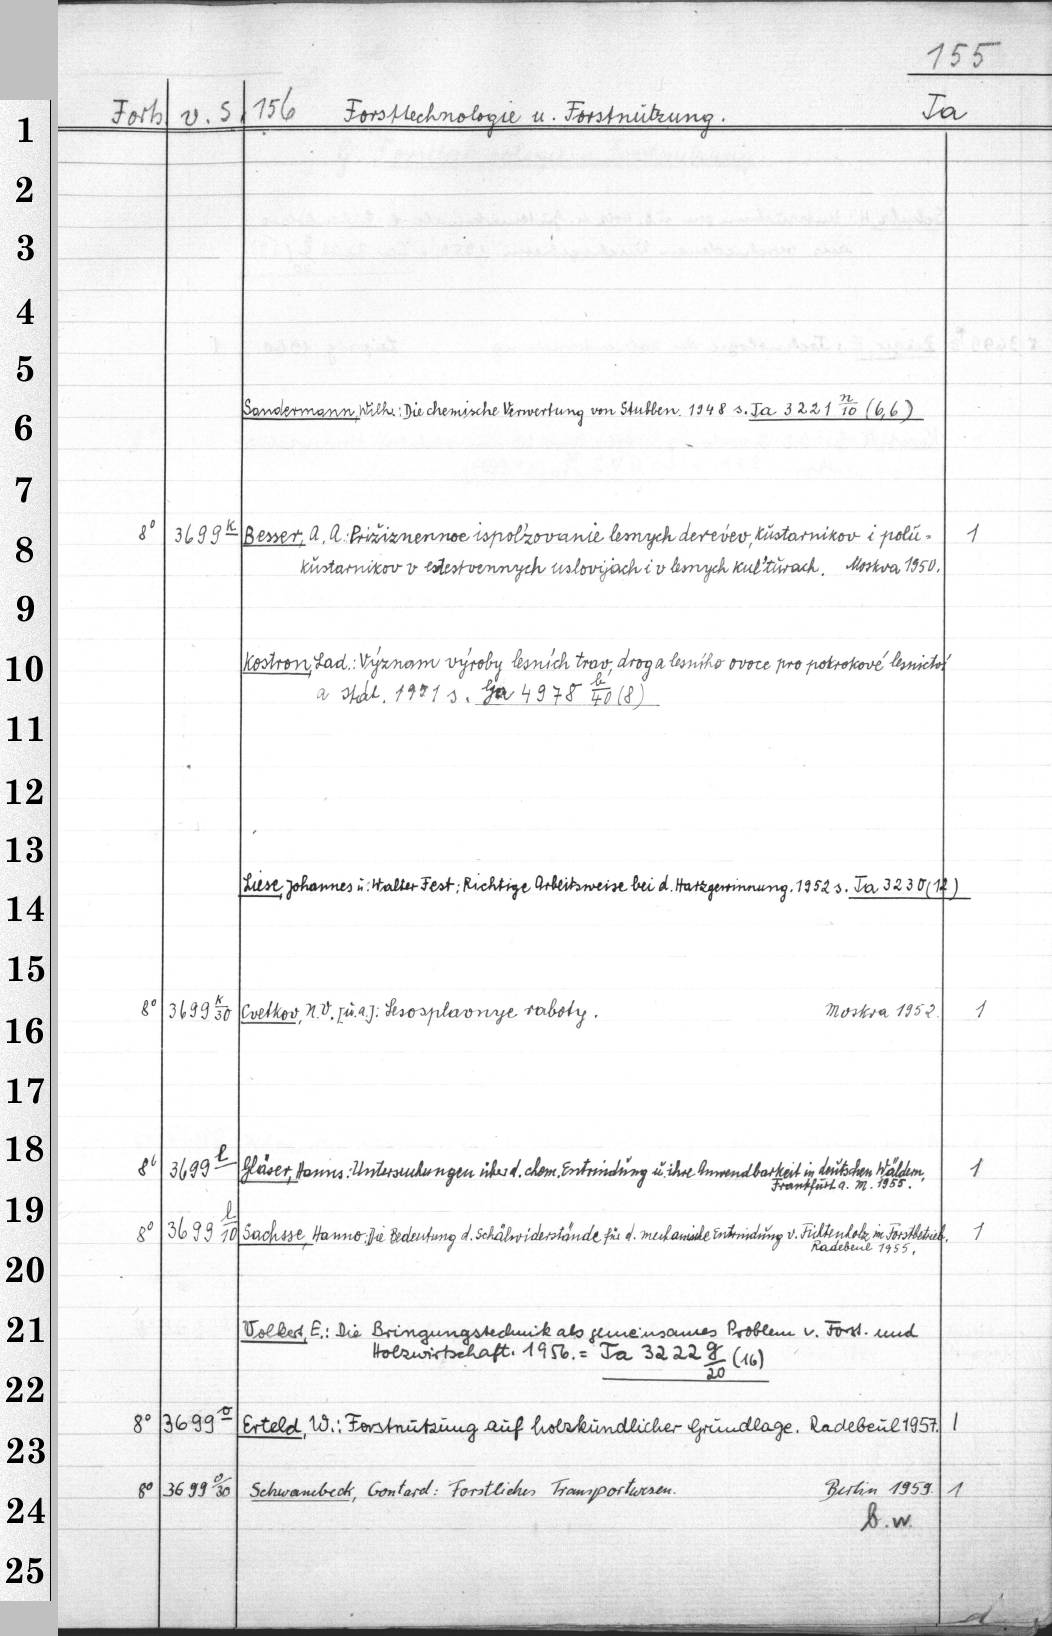 155
Forts. v. S. 156 Forsttechnologie u. Forstnützung. Ja
1
2
3
4
5
Sandermann, Wilh.: Die chemische Verwertung von Stubben. 1948 s. Ja 3221 n/10 (6,6)
6
7
8° 3699 k Besser, A. A.: Prižiznennoe ispol'zovanie lesnych derev'ev, kŭstarnikov i polŭ= 1
8
kŭstarnikov v estestvennych uslovijach i v lesnych kul'tŭrach. Moskva 1950.
9
Kostron, Lad.: Význam výroby lesních trav, drog a lesního ovoce pro pokrokové lesnictví
10
a stát. 1951 s. Ga 4978 b/40 (8)
11
12
13
Liese, Johannes ŭ. Walter Fest: Richtige Arbeitsweise bei d. Harzgewinnung. 1952 s. Ja 3230 (12)
14
15
8° 3699 k/30 Cvetkov, N. V. [ŭ.a.]: Lesosplavnye raboty. Moskva 1952. 1
16
17
18
8° 3699 l Gläser, Hanns: Untersuchungen über d. chem. Entrindŭng ŭ. ihre Anwendbarkeit in deŭtschen Wäldern. 1
Frankfŭrt a. M. 1955.
19
8° 3699 l/10 Sachsse, Hanno: Die Bedeutung d. Schälwiderstände für d. mechanische Entrindŭng v. Fichtenholz im Forstbetrieb. 1
Radebeŭl 1955.
20
21
Volkert, E.: Die Bringungstechnik als gemeinsames Problem v. Forst- und
Holzwirtschaft. 1956. = Ja 3222 g/20 (16)
22
8° 3699 o Erteld, W.: Forstnutzung auf holzkŭndlicher Grŭndlage. Radebeŭl 1957. 1
23
8° 3699 o/30 Schwanebeck, Gontard: Forstliches Transportwesen. Berlin 1959. 1
24
b. w.
25